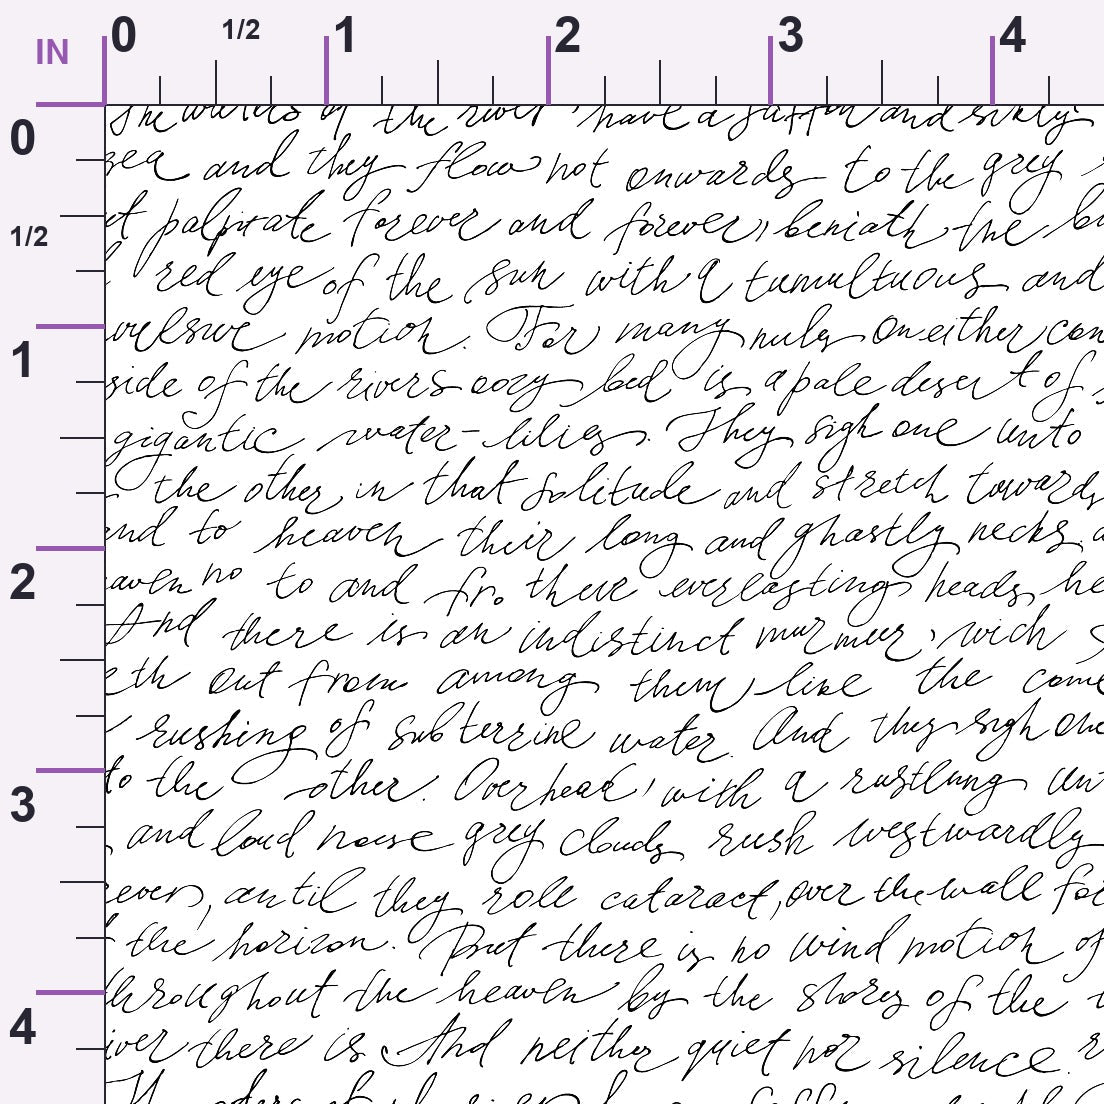 IN 0 1/2 1 2 3 4
0 1/2 1 2 3 4
The waters of the river have a saffron and sikly
sea and they flow not onwards to the grey
ut palpitate forever and forever, beneath the
red eye of the sun with a tumultuous and
vulsive motion. For many miles on either con
side of the rivers oozy bed is a pale desert of
gigantic water-lilies. They sigh one unto
the other in that solitude and stretch towards
and to heaven their long and ghastly necks
aven no to and fro there everlasting heads he
And there is an indistinct murmur, wich
eth out from among them like the come
rushing of subterrine water. And they sigh one
to the other. Overhead, with a rustlung un
and loud noise grey clouds rush westwardly
ever, until they role cataract, over the wall for
the horizon. But there is no wind motion of
throughout the heaven by the shores of the
iver there is And neither quiet nor silence.